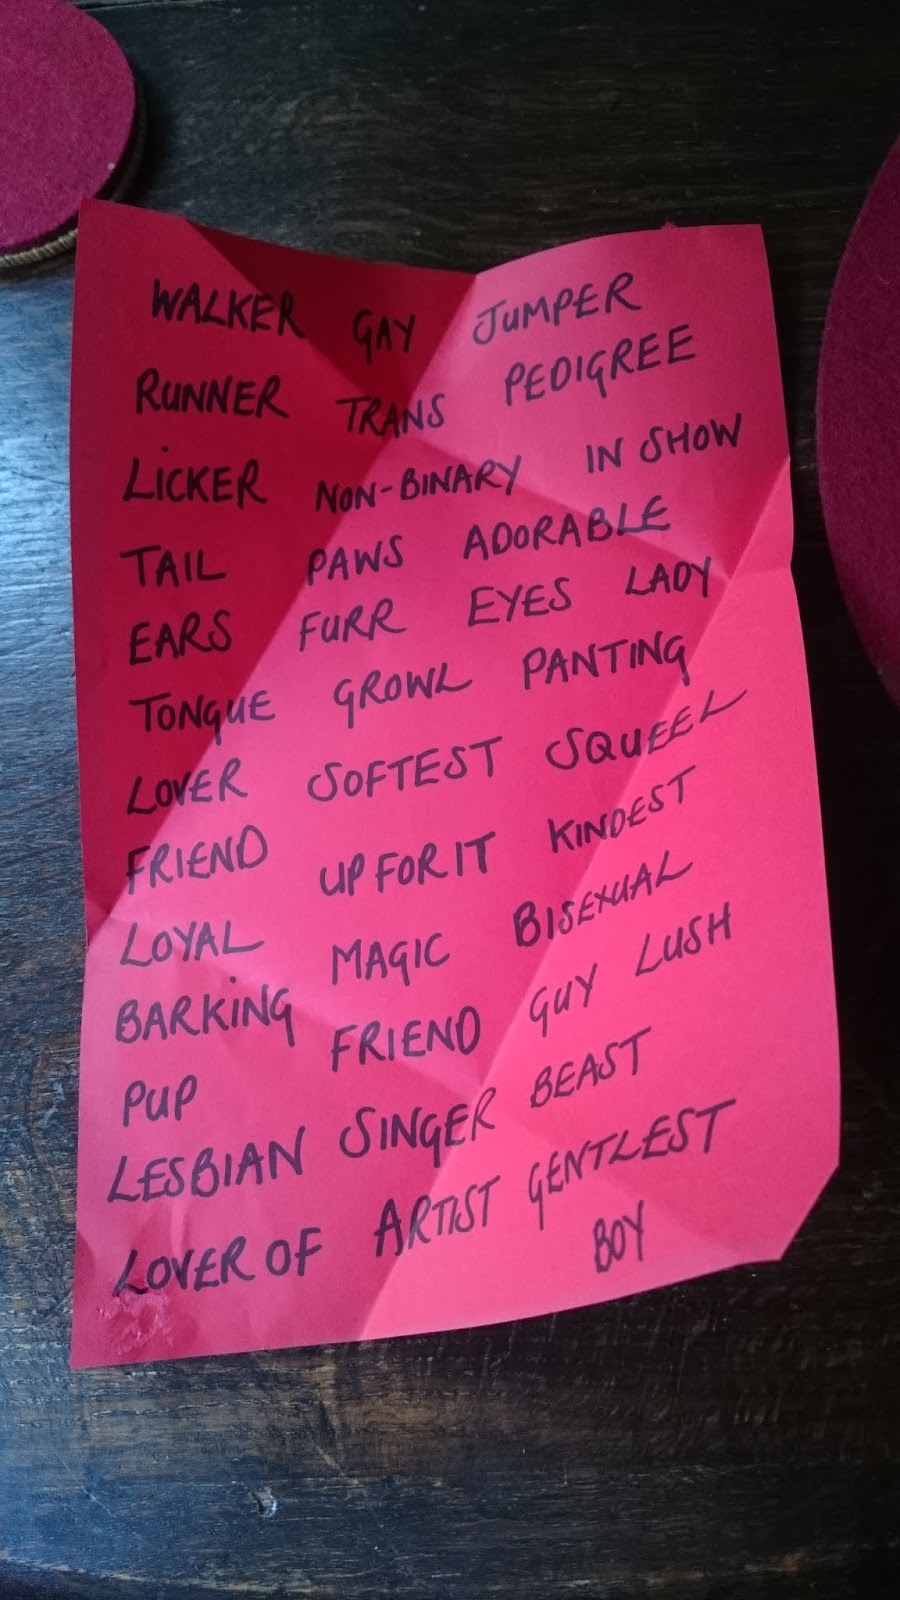 WALKER GAY JUMPER
RUNNER TRANS PEDIGREE
LICKER NON-BINARY IN SHOW
TAIL PAWS ADORABLE
EARS FURR EYES LADY
TONGUE GROWL PANTING
LOVER SOFTEST SQUEEL
FRIEND UP FOR IT KINDEST
LOYAL MAGIC BISEXUAL
BARKING FRIEND GUY LUSH
PUP
LESBIAN SINGER BEAST
LOVER OF ARTIST GENTLEST
BOY